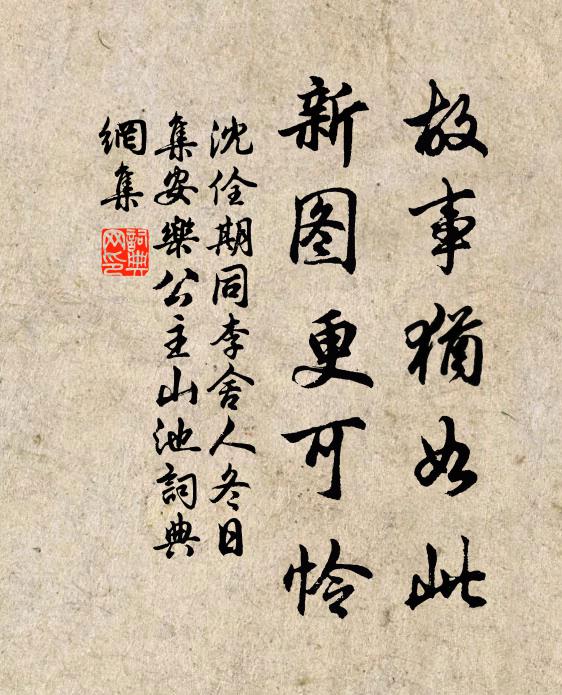 故事猶如此
新图更可怜
沈佺期同李舍人冬日
集安樂公主山池詞典
網集
詞典网印